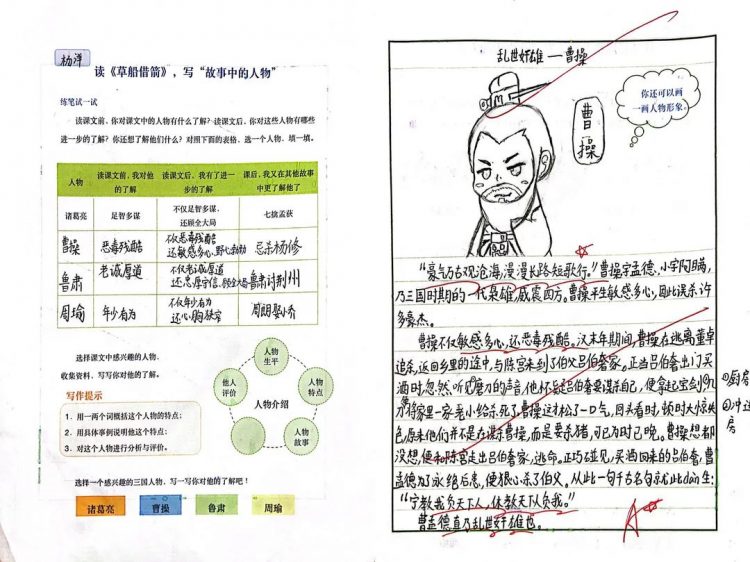 杨洋
读《草船借箭》，写“故事中的人物”
练笔试一试
读课文前，你对课文中的人物有什么了解？读课文后，你对这些人物有哪些
进一步的了解？你还想了解他们什么？对照下面的表格，选一个人物，填一填。
人物 读课文前，我对他的了解 读课文后，我有了进一步的了解 课后，我又在其他故事中更了解他了
诸葛亮 足智多谋 不仅足智多谋，还顾全大局 七擒孟获
曹操 恶毒残酷 不仅恶毒残酷还敏感多心、野心勃勃 忌杀杨修
鲁肃 老诚厚道 不仅老诚厚道还忠厚守信、顾全大局 鲁肃讨荆州
周瑜 年少有为 不仅年少有为还心胸狭窄 周郎娶小乔
选择课文中感兴趣的人物，
收集资料，写写你对他的了解。
写作提示
1. 用一两个词概括这个人物的特点；
2. 用具体事例说明他这个特点；
3. 对这个人物进行分析与评价。
人物生平
人物特点
人物故事
他人评价
人物介绍
选择一个感兴趣的三国人物，写一写你对他的了解吧！
诸葛亮 曹操 鲁肃 周瑜
乱世奸雄——曹操
你还可以画
一画人物形象
曹操
“豪气万古观沧海，漫漫长路短歌行。”曹操字孟德，小字阿瞒，
乃三国时期的一代枭雄，威震四方。曹操平生敏感多心，因此误杀许
多豪杰。
曹操不仅敏感多心，还恶毒残酷。汉末年期间，曹操在逃离董卓
追杀，返回乡里的途中，与陈宫来到了伯父吕伯奢家。正当吕伯奢出门买
酒时，忽然听见磨刀的声音，他怀疑吕伯奢要谋杀自己，便拿起宝剑
家里一家老小给杀死了。曹操这才松了一口气，回头看时，顿时大惊失
色，原来他们并不是在谋杀曹操，而是要杀猪，可已为时已晚。曹操想都
没想，便和陈宫走出吕伯奢家，逃命。正巧碰见，买酒回来的吕伯奢，曹
孟德为了永绝后患，便狠心杀了伯父。从此一句千古名句就此dàn生：
“宁教我负天下人，休教天下人负我。”
曹孟德真乃乱世奸雄也。
①厨房
②冲进
房
A